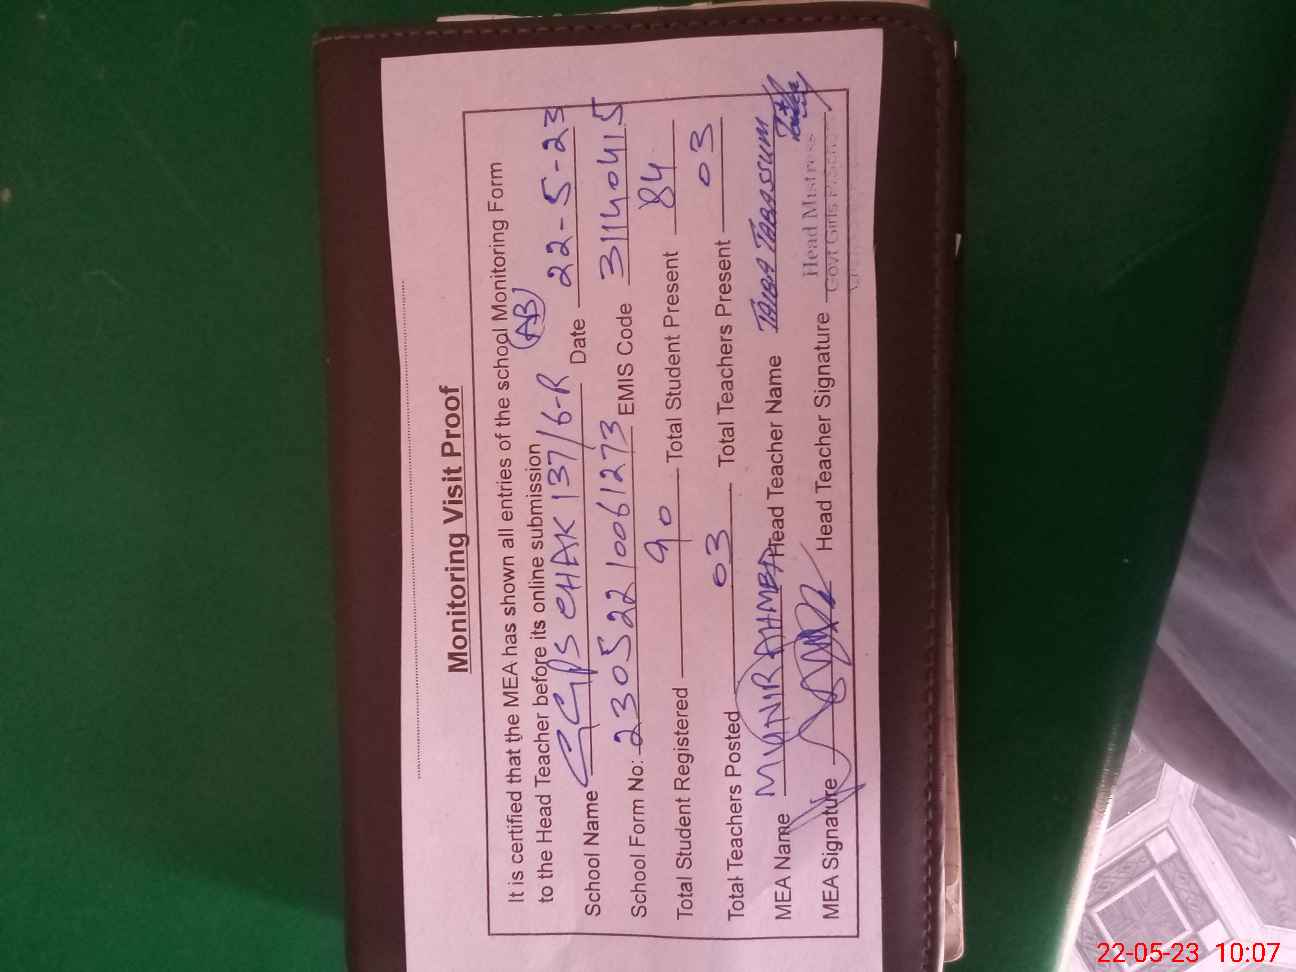 Monitoring Visit Proof
It is certified that the MEA has shown all entries of the school Monitoring Form
to the Head Teacher before its online submission
School Name GGPS CHAK 137/6-R (AB) Date 22-5-23
School Form No: 23052210061273 EMIS Code 31140415
Total Student Registered 90 Total Student Present 84
Total Teachers Posted 03 Total Teachers Present 03
MEA Name MUNIR AHMED Head Teacher Name TAIBA TABASSUM
MEA Signature Head Teacher Signature
Head Mistress
Govt Girls P/School
22-05-23 10:07